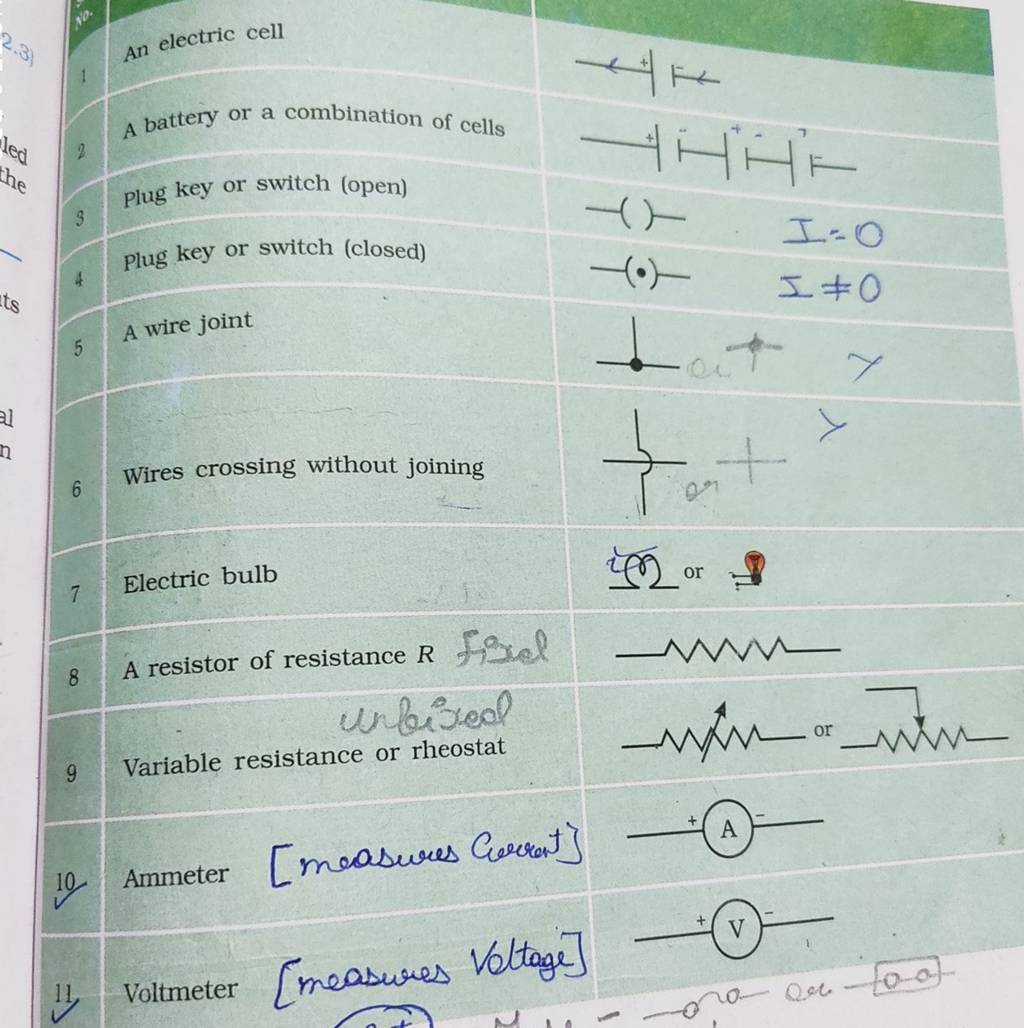 No.
2.3)
1 An electric cell
+ -
led
the
2 A battery or a combination of cells
+ - + - -
3 Plug key or switch (open)
I = 0
4 Plug key or switch (closed)
I ≠ 0
ts
5 A wire joint
or
al
n
6 Wires crossing without joining
or
7 Electric bulb
or
8 A resistor of resistance R fixed
unfixed
9 Variable resistance or rheostat
or
10 Ammeter [measures Current]
+ A -
11 Voltmeter [measures Voltage]
+ V -
or